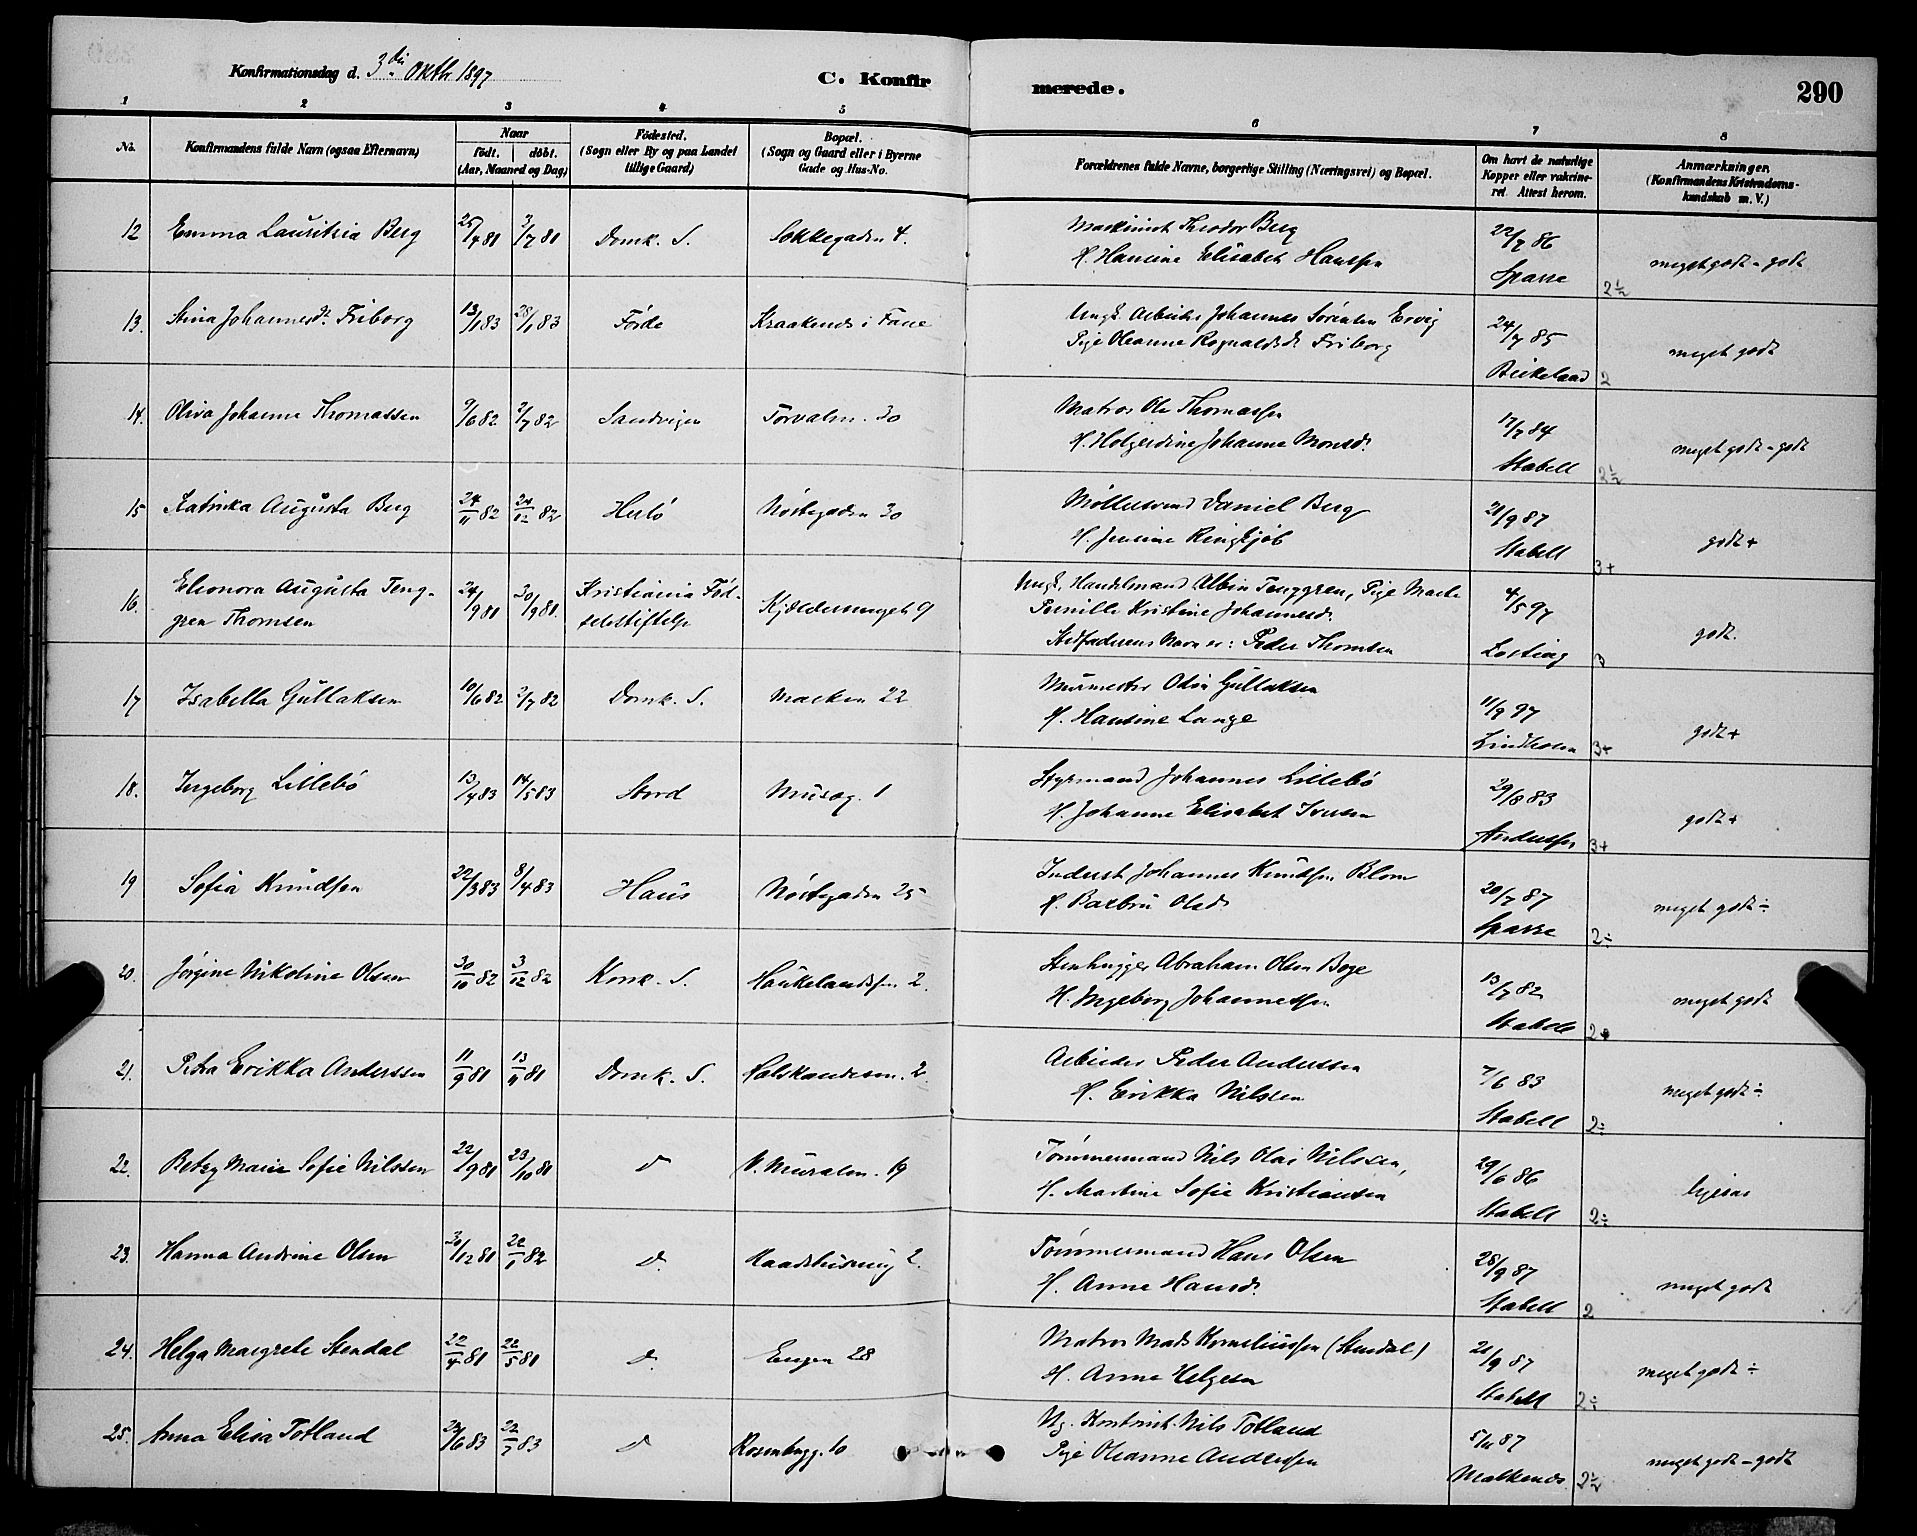 Konfirmationsdag d. 3die Oktbr 1897
C. Konfirmerede.
290
1 2 3 4 5 6 7 8
No.
Konfirmandens fulde Navn (ogsaa Efternavn)
Naar
födt. döbt.
(Aar, Maaned og Dag)
Födested.
(Sogn eller By og paa Landet
tillige Gaard)
Bopæl.
(Sogn og Gaard eller i Byerne
Gade og Hus-No.
Forældrenes fulde Navne, borgerlige Stilling (Næringsvei) og Bopæl.
Om havt de naturlige
Kopper eller vakcine-
ret. Attest herom.
Anmærkninger.
(Konfirmandens Kristendoms-
kundskab m. V.)
12 Emma Lauritzia Berg 25/4 81 3/7 81 Domk. S. Sokkegaden 4.
Maskinist Theodor Berg
H. Hansine Elisabet Hanssen
22/7 86
Sparre
2½ meget godt - godt
13. Stina Johannesdr. Friborg 13/1 83 28/1 83 Förde Kraakenes i Fane
Ungk. Arbeider Johannes Sörensen Ervig
Pige Oleanne Rognaldsdr Friborg
24/7 85
Birkeland
2 meget godt
14. Oliva Johanne Thomassen 9/6 82 2/7 82 Sandvigen Torvalm. 30
Matros Ole Thomassen
H. Holgerdine Johanne Monsdr.
17/7 84
Stabell
2½ meget godt - godt
15 Katinka Augusta Berg 24/11 82 24/12 82 Herlö Nöstegaden 30
Möllersvend Daniel Berg
H. Jensine Ringkjöb
21/9 87
Stabell
3+ godt+
16. Eleonora Augusta Teng-
gren Thomsen 24/9 81 30/9 81. Kristiania Föd-
selsstiftelse Kjeldersmuget 9
Ungk. Handelsmand Albin Tenggren, Pige
Pernille Kristine Johannesdr.
Stedfaderens Navn er: Peder Thomsen
4/5 97
3 godt.
17 Isabella Gullaksen 10/6 82 2/7 82 Domk. S. Marken 22
Murmester Olai Gullaksen
H. Hansine Lange
11/9 97
Lindholm
3+ godt+
18. Ingeborg Lillebö 13/4 83 14/5 83 Stord Museg. 1
Styrmand Johannes Lillebö
H. Johanne Elisabet Iversen
29/8 83
Anderssen
3+ godt+
19 Sofia Knudsen 22/3 83 8/4 83 Haus Nöstegaden 25
Inderst Johannes Knudsen Blom
H. Barbru Olsdr
20/7 87
Sparre
2÷ meget godt÷
20. Jörgine Nikoline Olsen 30/10 82 3/12 82 Korsk. S. Haukelandsv. 2.
Stenhugger Abraham Olsen Boge
H. Ingeborg Johannessen
13/7 82
Stabell
2 meget godt
21. Petra Erikka Anderssen 11/9 81 13/11 81 Domk. S. Kalskandsm. 2
Arbeider Peder Anderssen
H. Erikka Nilssen
7/6 83
Stabell
2÷ meget godt÷
22. Betzy Marie Sofie Nilssen 22/9 81 23/10 81 d V. Muralm. 19
Tömmermand Nils Olai Nilssen,
H. Martine Sofie Kristiansen
29/6 86
Stabell
2÷ ligesaa
23. Hanna Andrine Olsen 30/12 81 22/1 82 d. Raadhusmug 2.
Tömmermand Hans Olsen
H. Anne Hansdr.
28/9 87
Stabell
2 meget godt
24. Helga Margrete Stendal 22/4 81 22/5 81 d. Engen 28
Matros Mads Korneliussen (Stendal)
H. Anne Helgesen
21/9 87
Stabell
2÷ meget godt÷
25. Anna Elisa Totland 24/6 83 22/7 83 d Rosenbugg. 10
Ug. Kontorist Nils Totland
Pige Oleanne Anderssen
5/11 87
2½ meget godt - godt